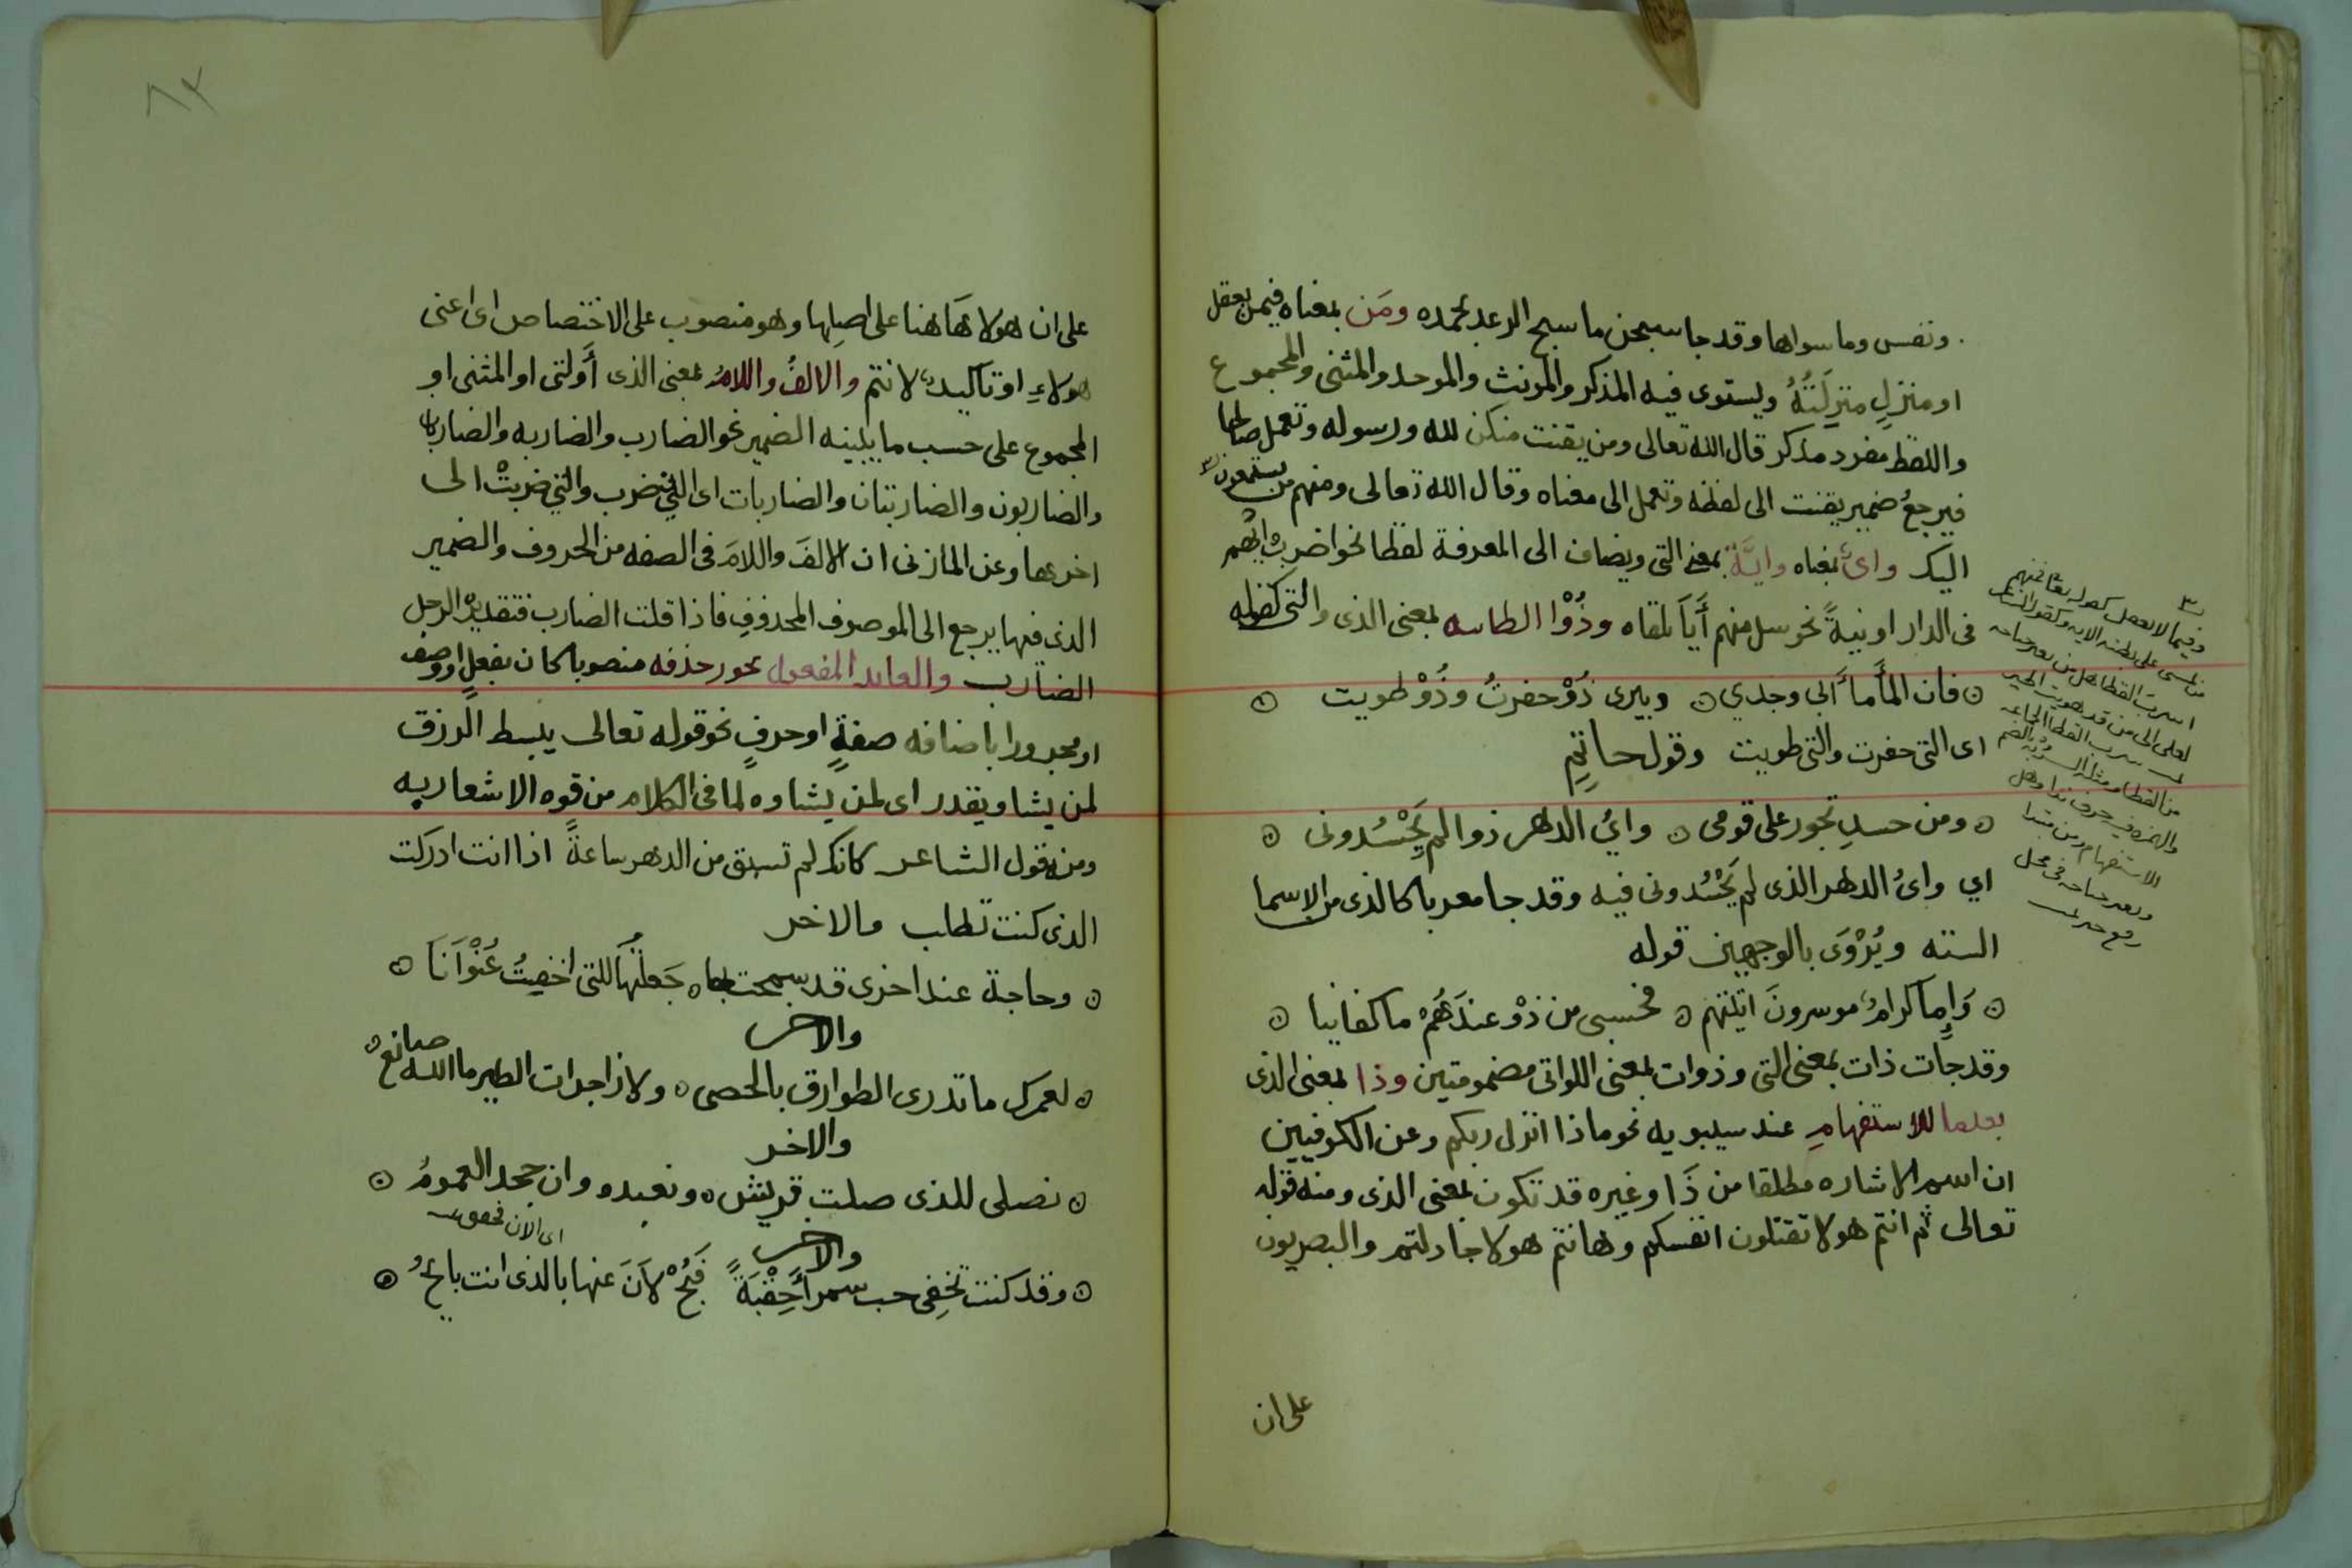 ونفس وما سواها وقد جا سبحن ما سبح الرعد بحمده ومَن بمعناه فيمن يعقل
او منزلٍ منزلَتَهُ ويستوى فيه المذكر والمونث والموحد والمثنى والمجموع
واللفظ مفرد مذكر قال الله تعالى ومن يقنت منكن لله ورسوله وتعمل صالحا
فيرجعُ ضمير يقنت الى لفظه وتعمل الى معناه وقال الله تعالى ومنهم من يستمعون
اليك واىٌ بمعناه وايَّةٌ بمعنى التى ويضاف الى المعرفة لفظا نحو اضرب ايهم
فى الدار او نيةً نحو سل منهم أَيًا تلقاه وذُوْا الطاىيه بمعنى الذى والتى كقوله
فان المأَمأَ ابى وجدي وبيرى ذُوْ حفرتُ وذُوْ طويت
اى التى حفرت والتى طويت وقول حاتِمٍ
ومن حسدٍ تجور على قومى وايُ الدهر ذوا لم يَحْسُدونى
اي واىُ الدهر الذى لم يَحْسُدونى فيه وقد جا معربا كالذى من الاسما
السته ويُرْوَى بالوجهين قوله
وَإِما كرامٌ موسرونَ اتيتهم فحسبى من ذوْ عندَهُمْ ما كفانيا
وقد جأت ذات بمعنى التى وذوات بمعنى اللواتى مضمومتين وذا بمعنى الذى
بعدما للاستفهامِ عند سيبويه نحو ماذا انزل ربكم وعن الكوفيين
ان اسم الاشاره مطلقا من ذَا وغيره قد تكون بمعنى الذى ومنه قوله
تعالى ثم انتم هولا تقتلون انفسكم وهانتم هولا جادلتم والبصريون
على ان
وفيما لا يعقل كقوله تعا فمنهم
من يمشى على بطنه الايه وكقول الشاعر
اسرب القطا هل من يعير جناحه
لعلى الى من قد هويت اطير
سرب القطا الجاعه
من القطا ومثله السربه بالضم
والهمزه فيه حرف ندا وهل
الاستفهام ومن مبتدا
ويعير جناحه فى محل
رفع خبر
٨٢
على ان هولا هَاهنا على اصلِها وهو منصوب على الاختصاص اى اعنى
هولاءِ او تاكيدٌ لانتم والالفُ واللامُ بمعنى الذى أَوالتى او المثنى او
المجموع على حسب ما يبينه الضمير نحو الضارب والضاربه والضاربان
والضاربون والضاربتان والضاربات اى الذى ضرب والتى ضربتْ الى
اخرها وعن المازنى ان الالفَ واللامَ فى الصفه من الحروف والضمير
الذى فيها يرجع الى الموصوف المحذوفِ فاذا قلت الضارب فتقديره الرجل
الضارب والعايد المفعول يجوز حذفه منصوبا كان بفعلٍ او وصف
او مجرورا باضافه صفةٍ او حرفٍ نحو قوله تعالى يبسط الرزق
لمن يشا ويقدر اى لمن يشاوه لما فى الكلام من قوه الاشعار به
ومنه قول الشاعر كانك لم تسبق من الدهر ساعةً اذا انت ادركت
الذى كنت تطلب والاخر
وحاجة عند اخرى قد سمحت بها جَعلتُها للتى اخفيتُ عُنْوَانَا
والاخر
لعمرك ما تدرى الطوارق بالحصى ولا زاجرات الطير ما الله صانعُ
والاخر
نصلى للذى صلت قريش ونعبده وان جحد العمومُ
والاخر
اى الان
وقد كنت تخفِى حب سمرأَ حِقْبَةً فَبُحْ لاَنَ عنها بالذى انت بايحُ